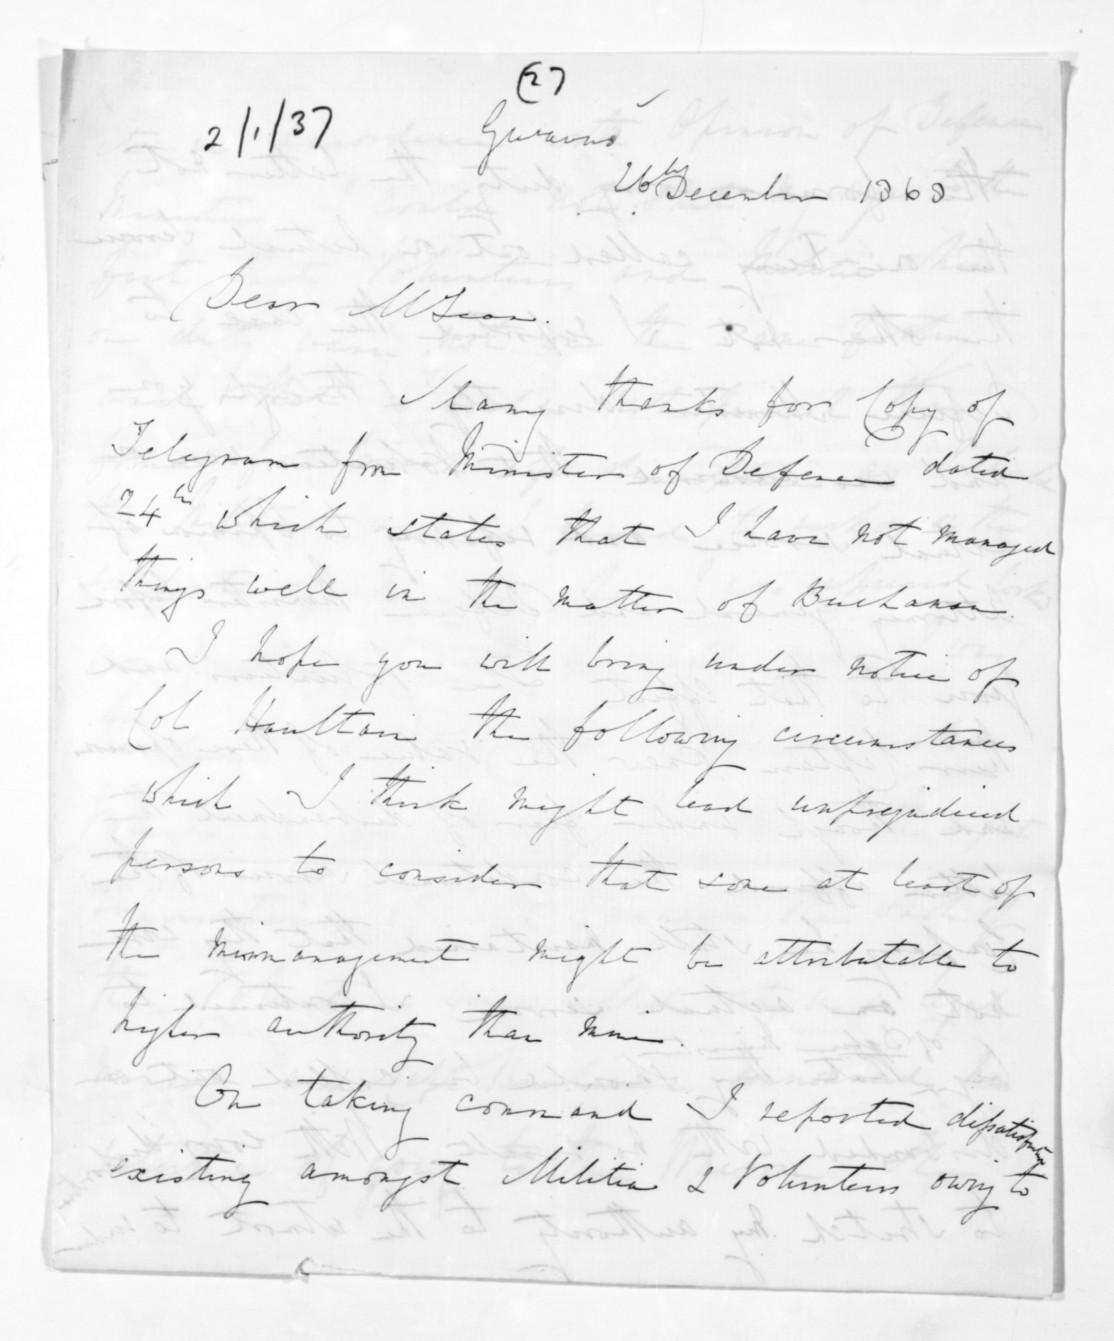 27
2/1/37
26th December 1868
Dear McLean.
Many thanks for Copy of
Telegram from Minister of Defence dated
24th which states that I have not managed
things well in the matter of Buchanan.
I hope you will bring under notice of
Col Haultain the following circumstances
which I think might lead unprejudiced
persons to consider that some at least of
the mismanagement might be attributable to
higher authority than mine.
On taking command I reported dissatisfaction
existing amongst Militia & Volunteers owing to